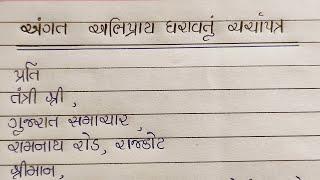 અંગત અભિપ્રાય ધરાવતું ચર્ચાપત્ર
પ્રતિ
તંત્રી શ્રી,
ગુજરાત સમાચાર,
રામનાથ રોડ, રાજકોટ
શ્રીમાન,